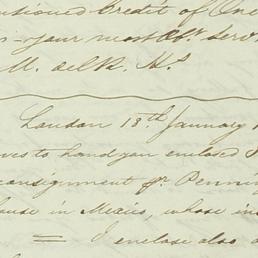 tioned Credit of One
your most Obt. serv
London 18th. January 1
to hand you enclosed
consignment pr. Pennin
house in Mexico, whose in
I enclose also a